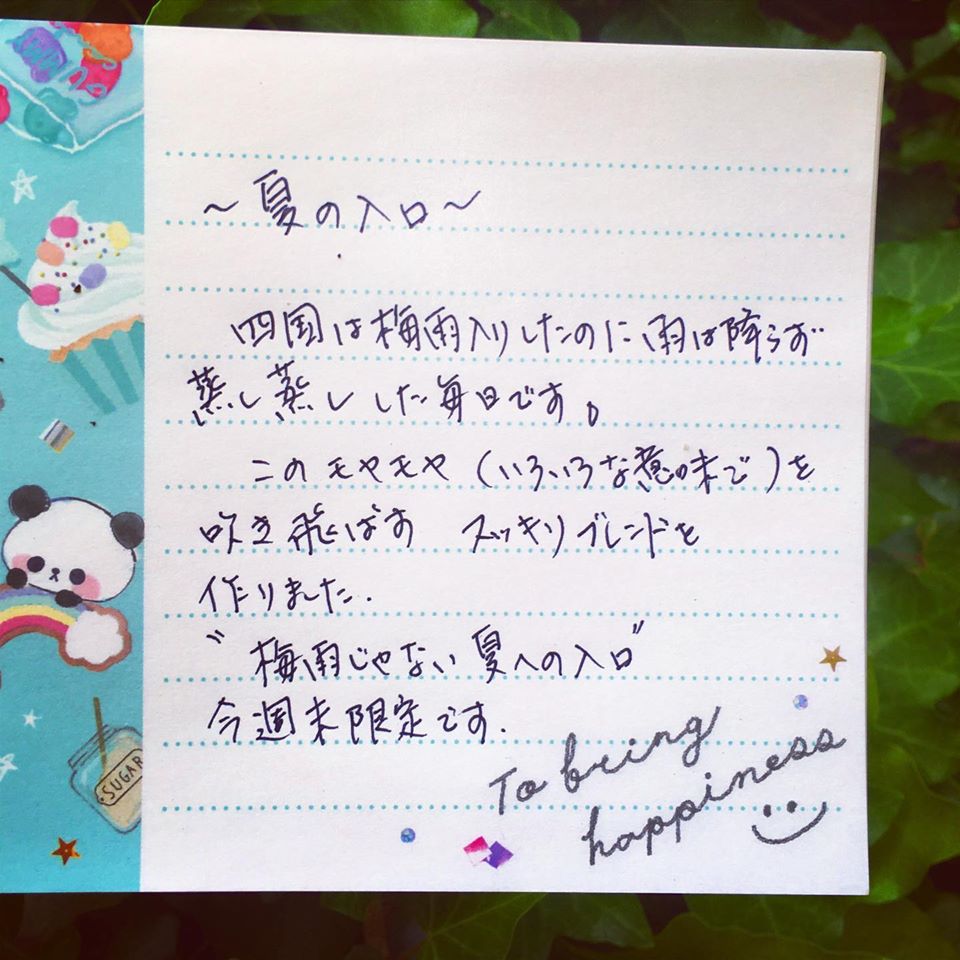 ～夏の入口～
四国は梅雨入りしたのに雨は降らず
蒸し蒸しした毎日です。
このモヤモヤ（いろいろな意味で）を
吹き飛ばす スッキリブレンドを
作りました.
"梅雨じゃない夏への入口"
今週末限定です.
To being
happiness
SUGAR